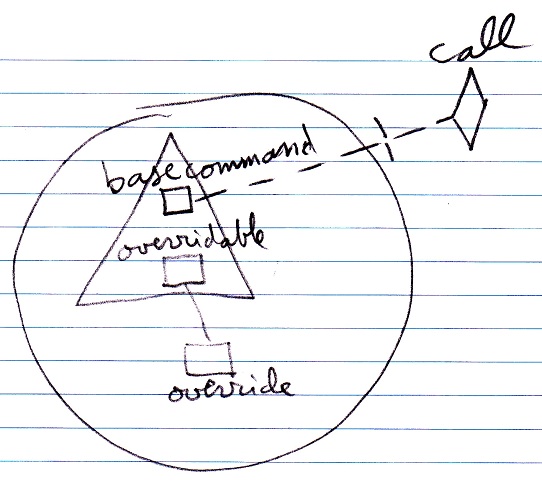 call
basecommand
overridable
override